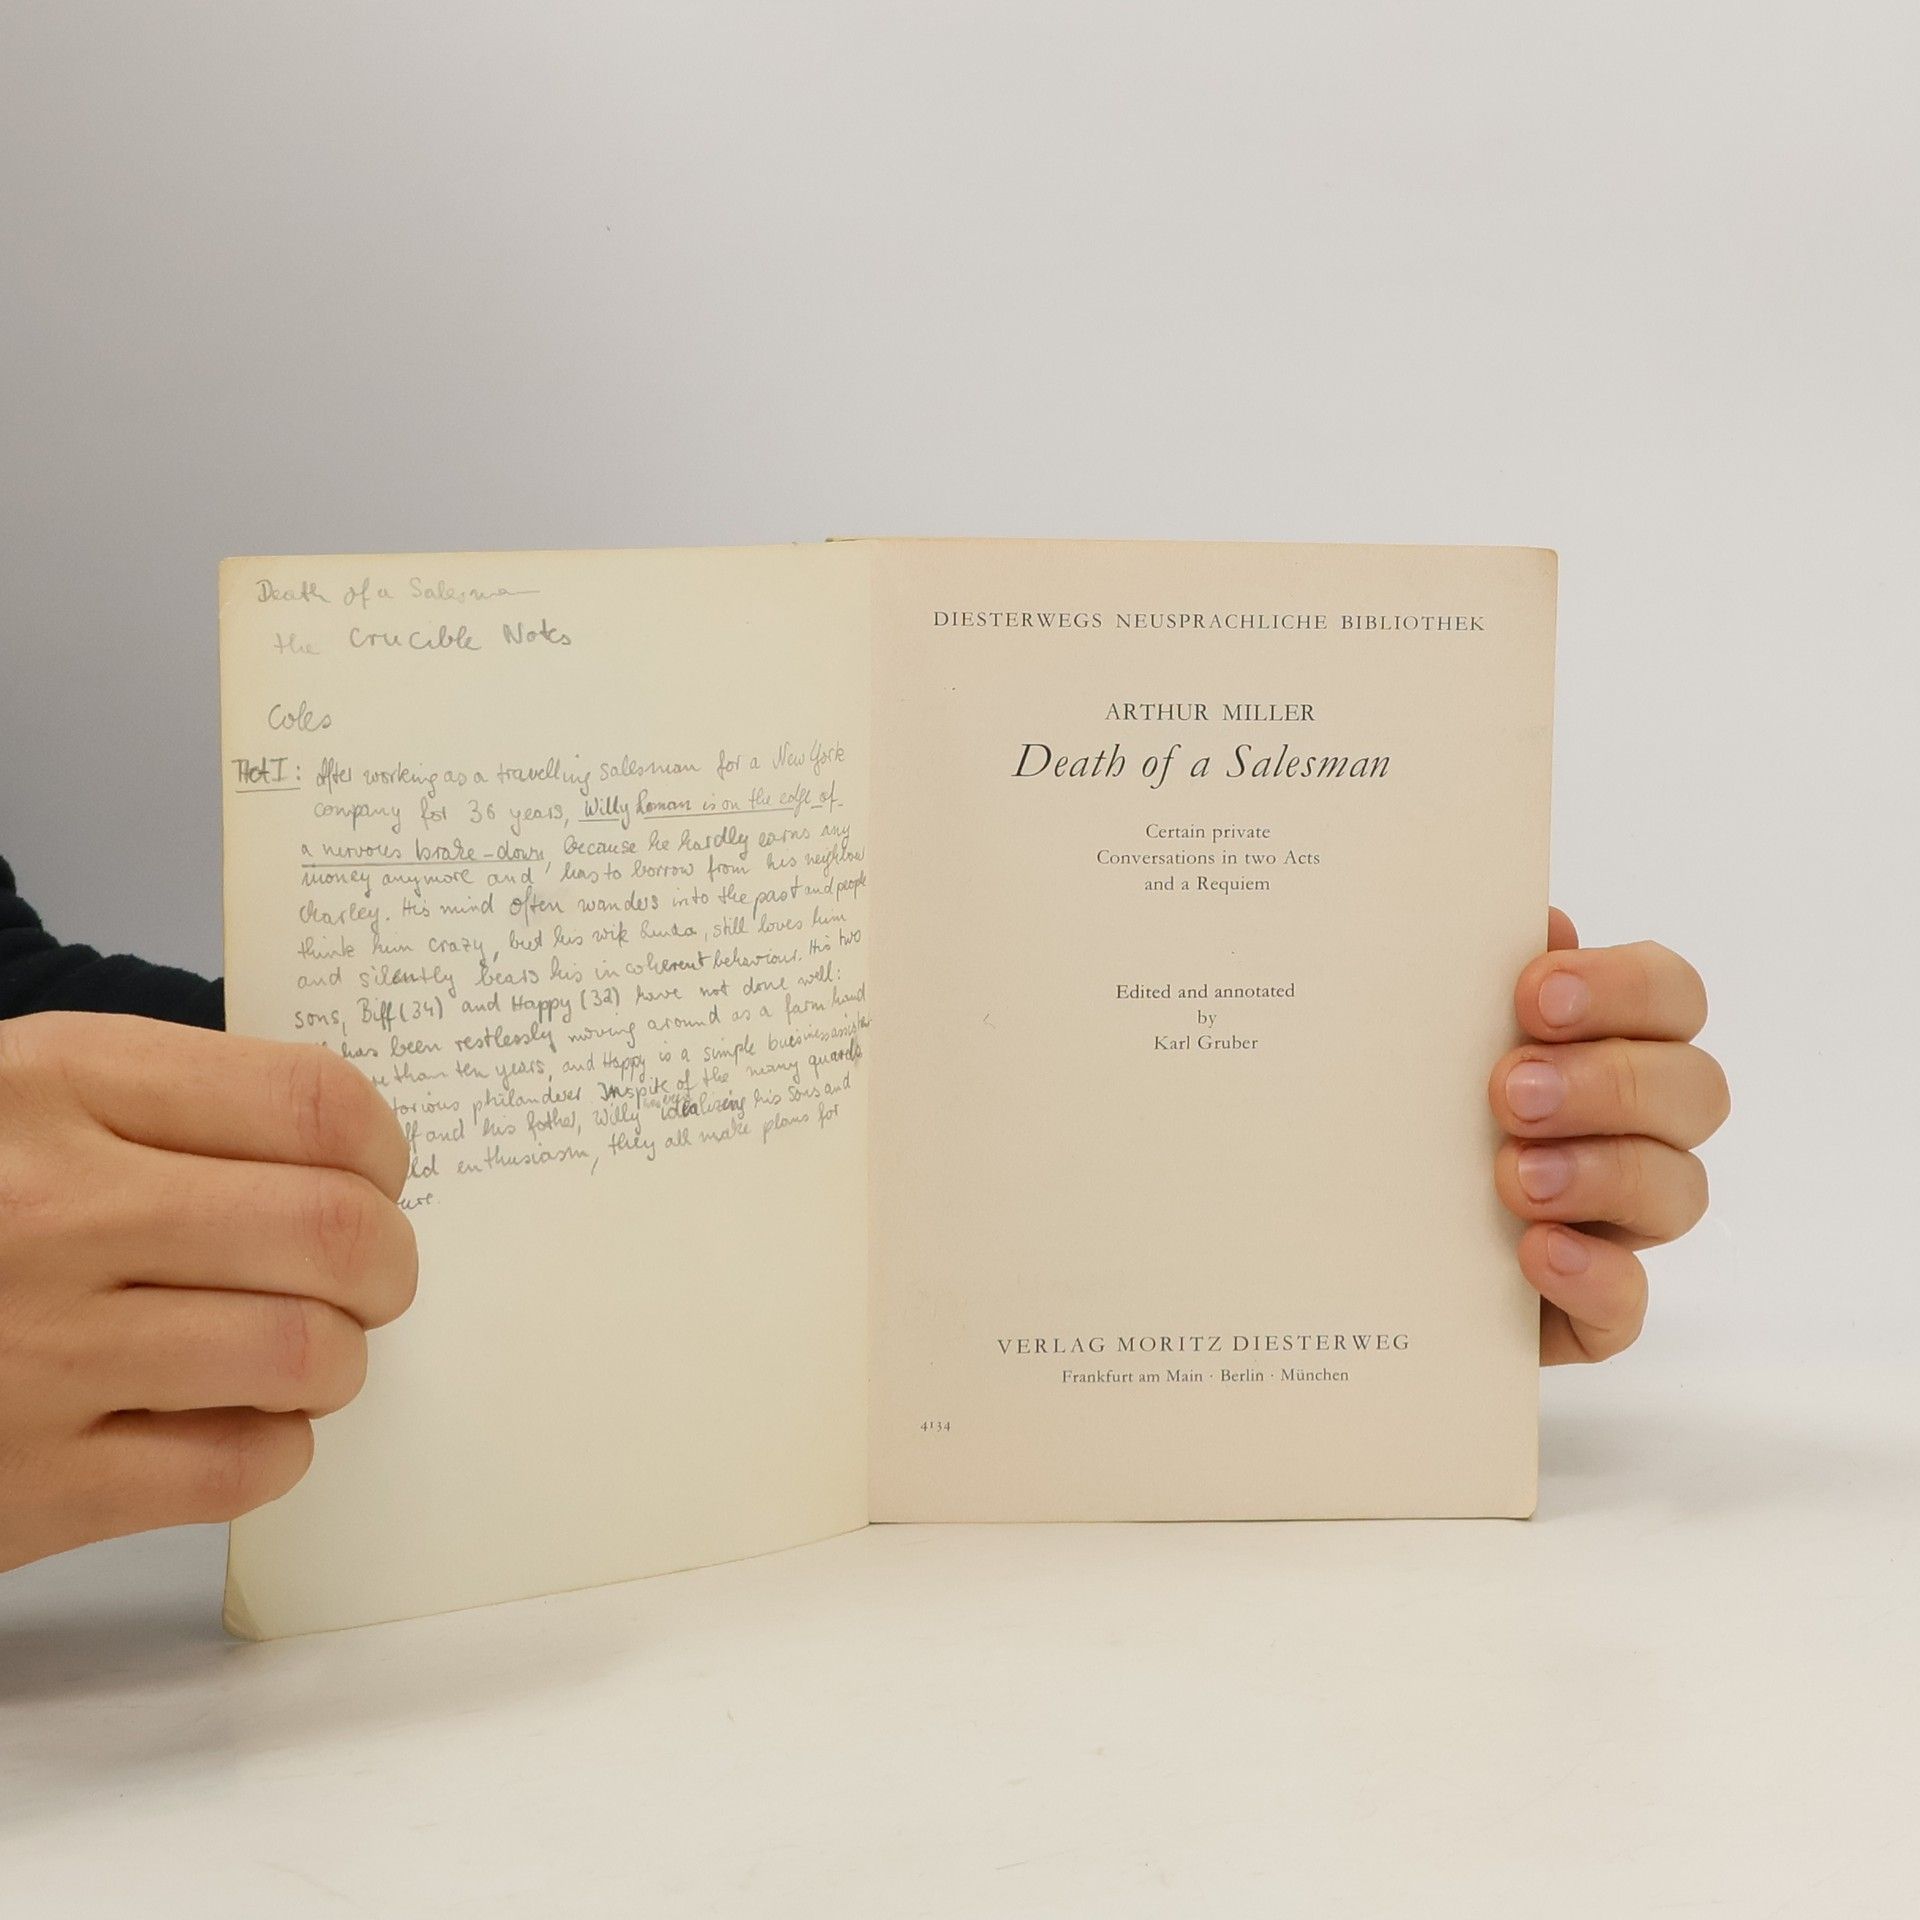 Death of a Salesman
the Crucible Notes
Coles
Act I: After working as a travelling Salesman for a New York
company for 36 years, Willy Loman is on the edge of
a nervous brake-down, because he hardly earns any
money anymore and has to borrow from his neighbour
Charley. His mind often wanders into the past and people
think him crazy, but his wife Linda, still loves him
and silently bears his incoherent behaviour. His two
sons, Biff (34) and Happy (32) have not done well:
has been restlessly moving around as a farm hand
than ten years, and Happy is a simple business assistant
philanderer. Inspite of the many quarels
and his father, Willy idealizing his Sons and
enthusiasm, they all make plans for
DIESTERWEGS NEUSPRACHLICHE BIBLIOTHEK
ARTHUR MILLER
Death of a Salesman
Certain private
Conversations in two Acts
and a Requiem
Edited and annotated
by
Karl Gruber
VERLAG MORITZ DIESTERWEG
Frankfurt am Main · Berlin · München
4134